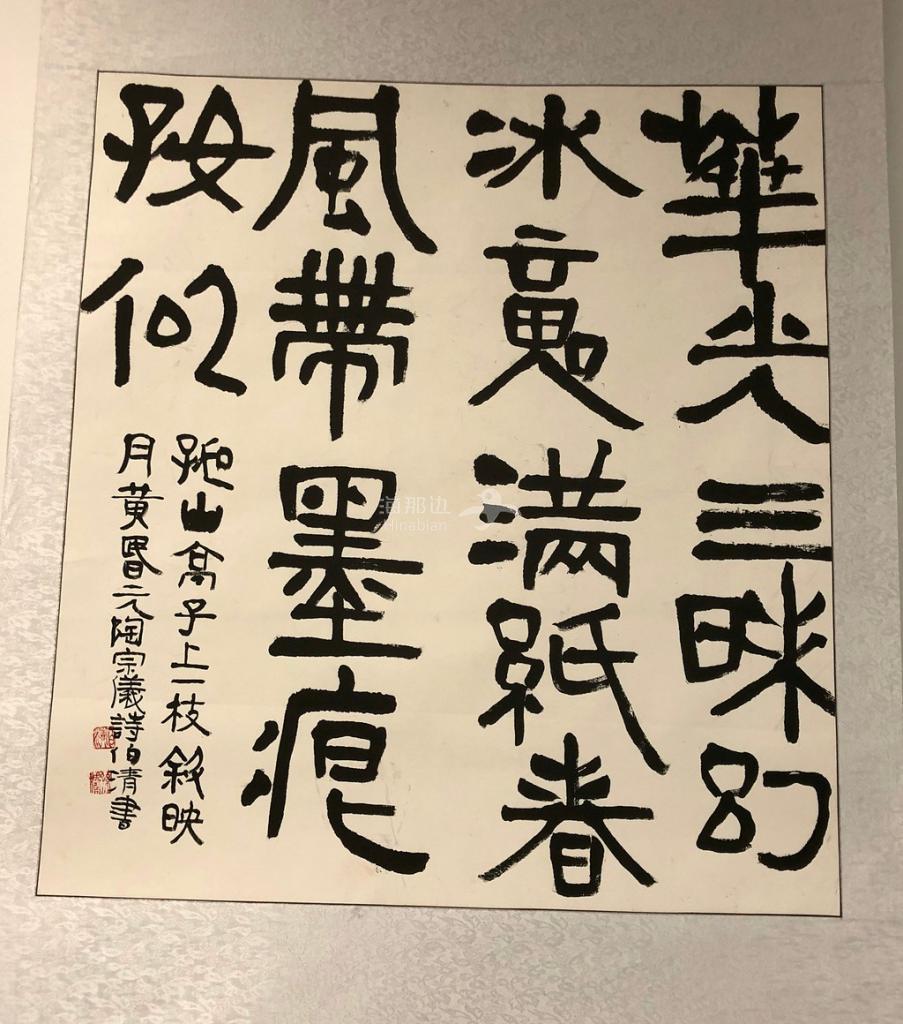 華光三昧幻
冰魂滿紙春
風帶墨痕
好似
孤山亭子上一枝斜映
月黃昏元陶宗儀詩伯清書
海那边
Hinabian